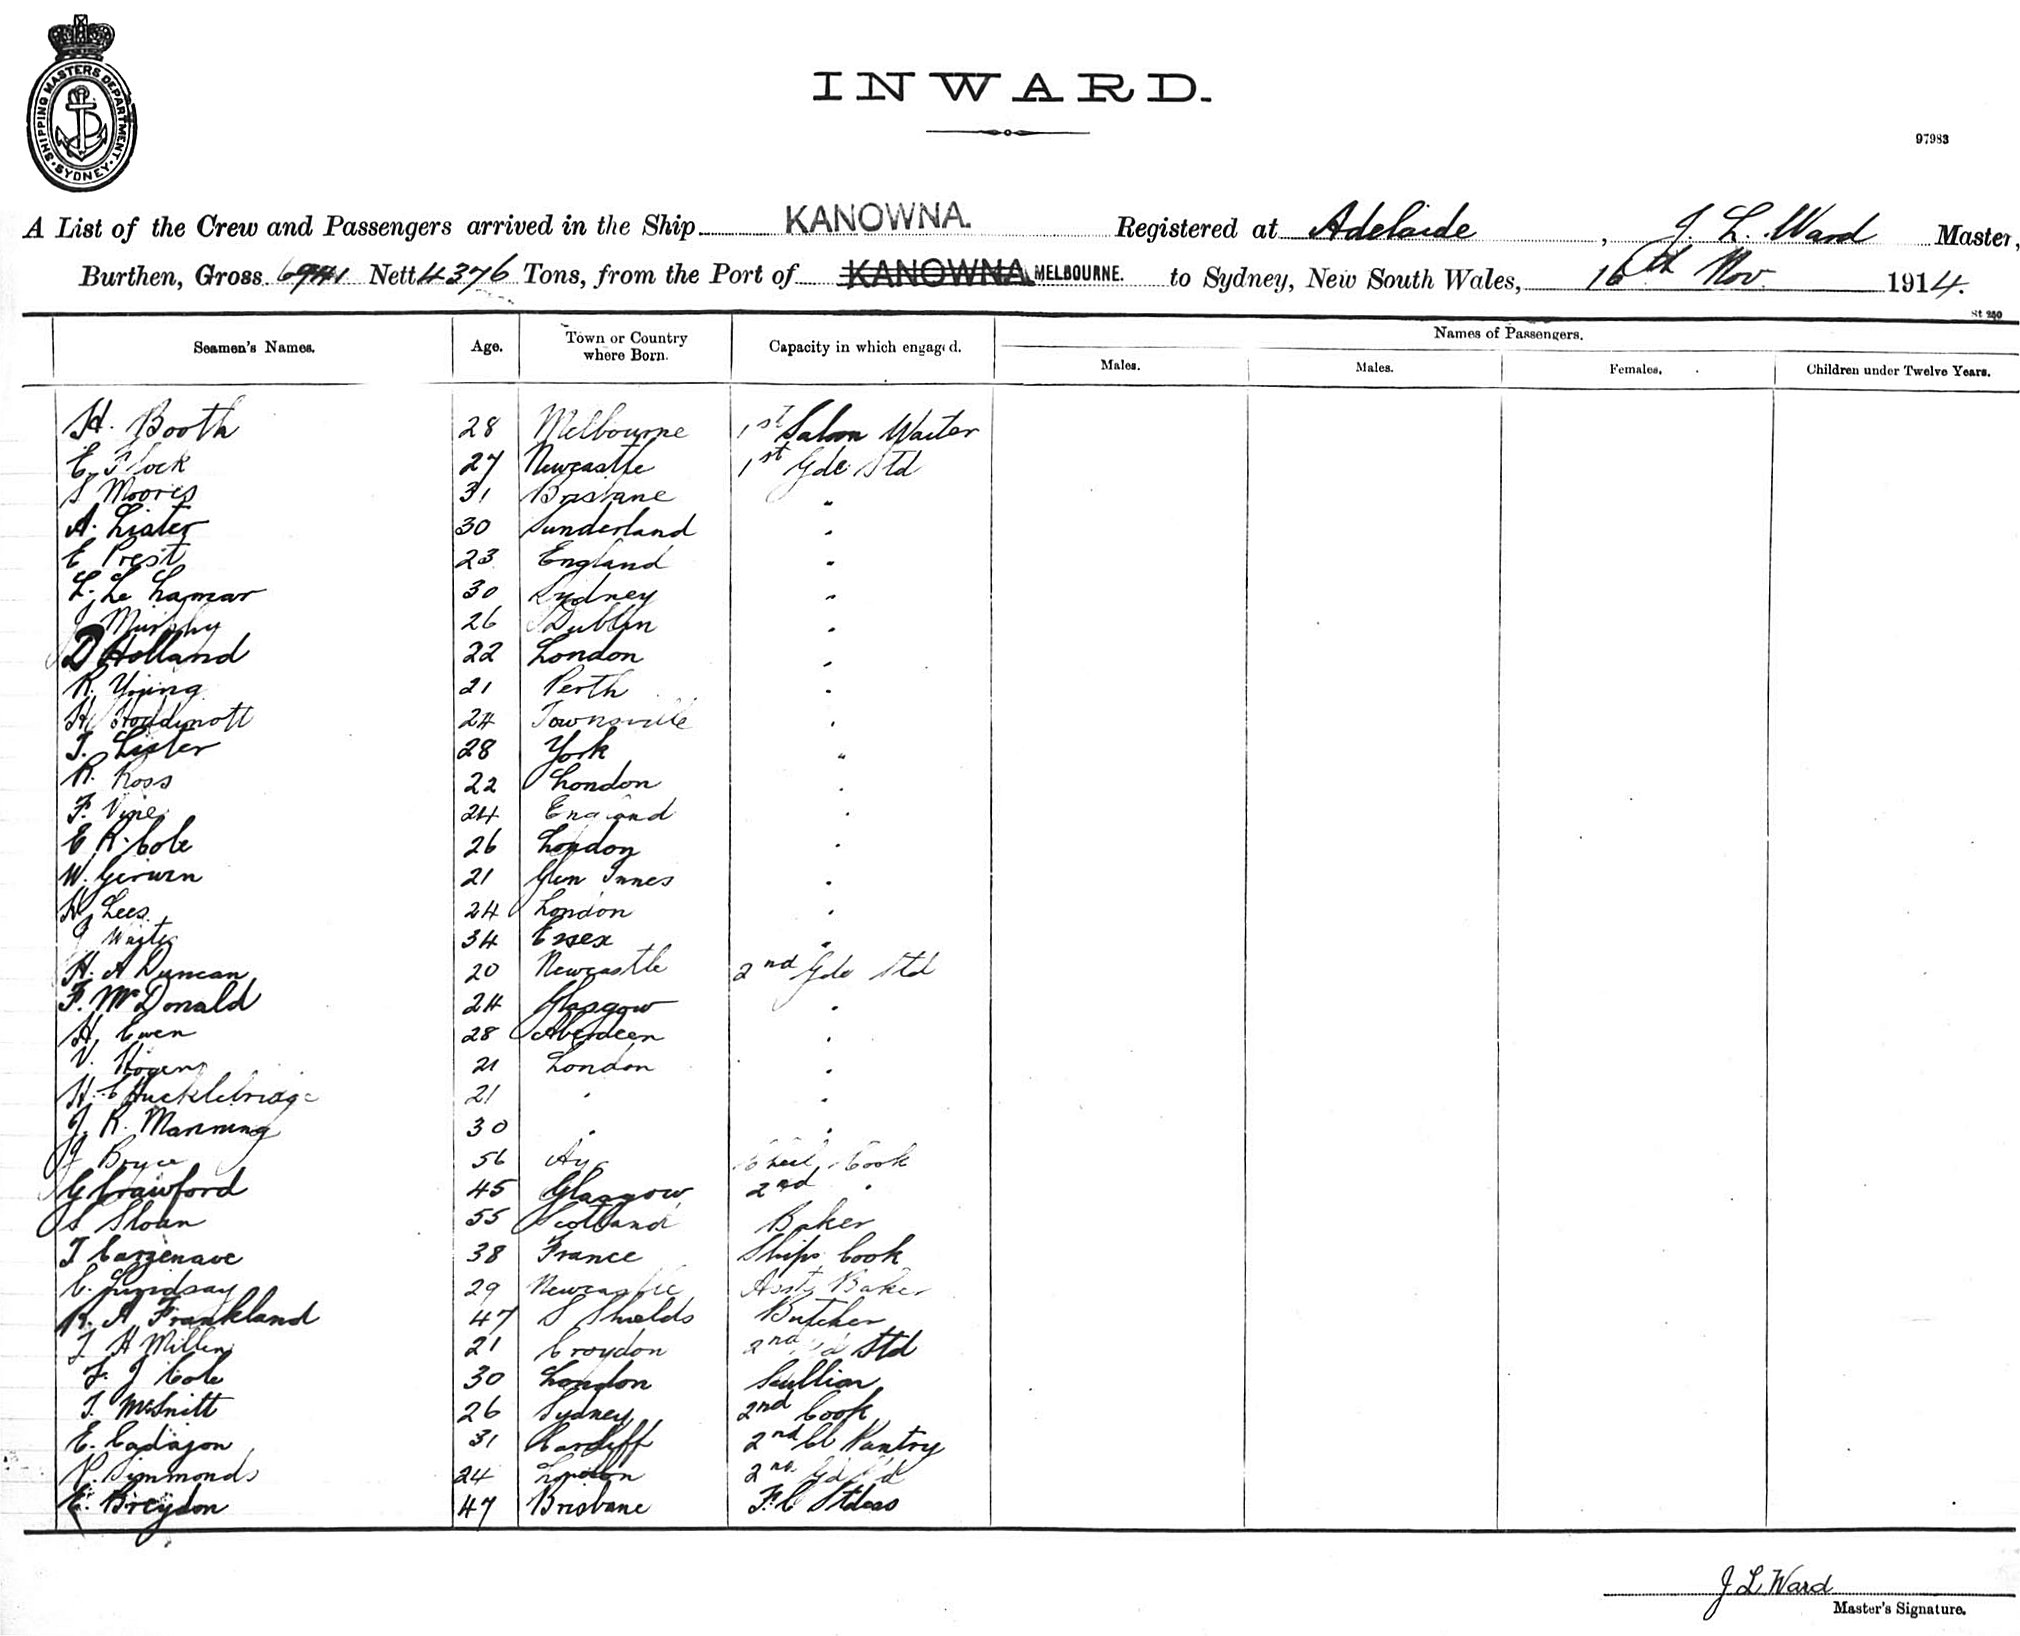 SHIPPING MASTERS DEPARTMENT SYDNEY
INWARD.
97983
A List of the Crew and Passengers arrived in the Ship KANOWNA. Registered at Adelaide, J. L. Ward Master,
Burthen, Gross Nett 4376 Tons, from the Port of KANOWNA MELBOURNE. to Sydney, New South Wales, 16th Nov. 1914.
St 250
Names of Passengers.
Seamen's Names. Age. Town or Country where Born. Capacity in which engaged. Males. Males. Females. Children under Twelve Years.
H. Booth 28 Melbourne 1st Saloon Waiter
E. Flock 27 Newcastle 1st Gde Std
S Moores 31 Brisbane "
A. Lister 30 Sunderland "
E Prest 23 England "
L. Le Lamar 30 Sydney "
J Murphy 26 Dublin "
D Holland 22 London "
R. Young 21 Perth "
H. Hoddinott 24 Townsville "
T. Lister 28 York "
R. Ross 22 London "
F. Vine 24 England "
E R. Cole 26 London "
W. Girwen 21 Glen Innes "
H Lees 24 London "
J 34 Essex "
H. A Duncan 20 Newcastle 2nd Gde Std
F. McDonald 24 Glasgow "
H. Ewen 28 Aberdeen "
V. Hogen 21 London "
H. C Hucklebridge 21 " "
J. R. Manning 30 " "
J Bryce 56 Chief Cook
G Crawford 45 Glasgow 2nd "
S Sloan 55 Scotland Baker
J Cazenave 38 France Ships Cook
C. Lindsay 29 Newcastle Asst Baker
R. A Frankland 47 S Shields Butcher
J H Millen 21 Croydon 2nd Std
F. J Cole 30 London Scullion
T. McSnitt 26 Sydney 2nd Cook
E. Cadajon 31 Cardiff 2nd Cl Pantry
Simmonds 24 London 2nd
E. Breydon 47 Brisbane F. C Stdess
J L Ward
Master's Signature.